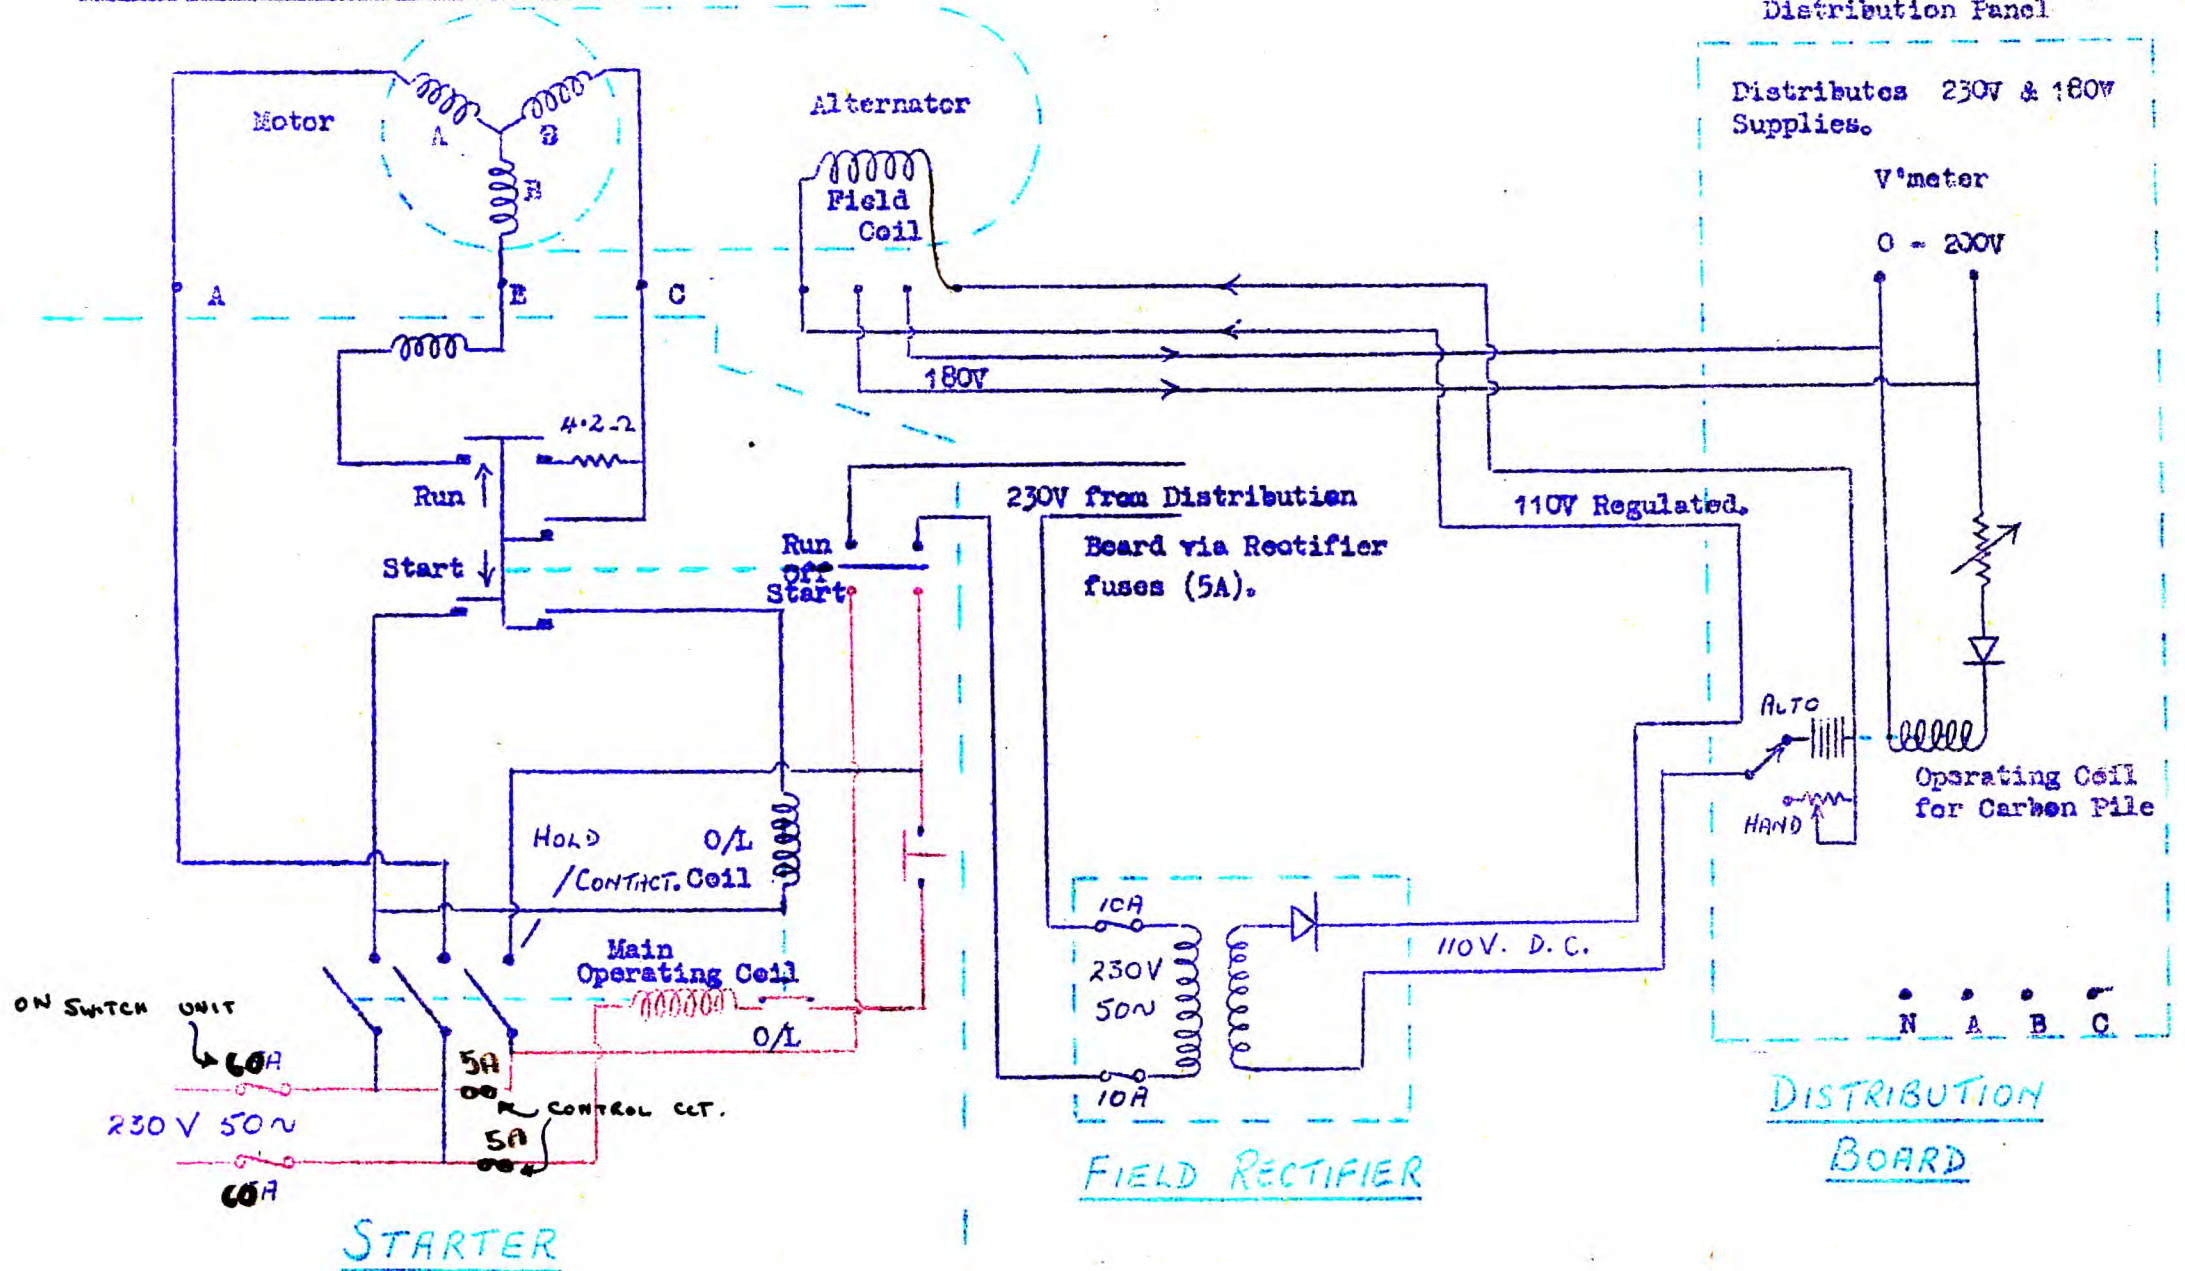 Distribution Panel
Distributes 230V & 180V
Supplies.
V'meter
0 - 200V
Motor
A
B
Alternator
Field
Coil
A
B
C
180V
4.2Ω
Run
Start
Run
Off
Start
230V from Distribution
Board via Rectifier
fuses (5A).
110V Regulated.
AUTO
HAND
Operating Coil
for Carbon Pile
HOLD
/CONTACT.
O/L
Coil
Main
Operating Coil
O/L
ON SWITCH UNIT
60A
5A
CONTROL CCT.
230V 50~
5A
60A
10A
230V
50~
10A
110V. D.C.
N A B C
STARTER
FIELD RECTIFIER
DISTRIBUTION
BOARD